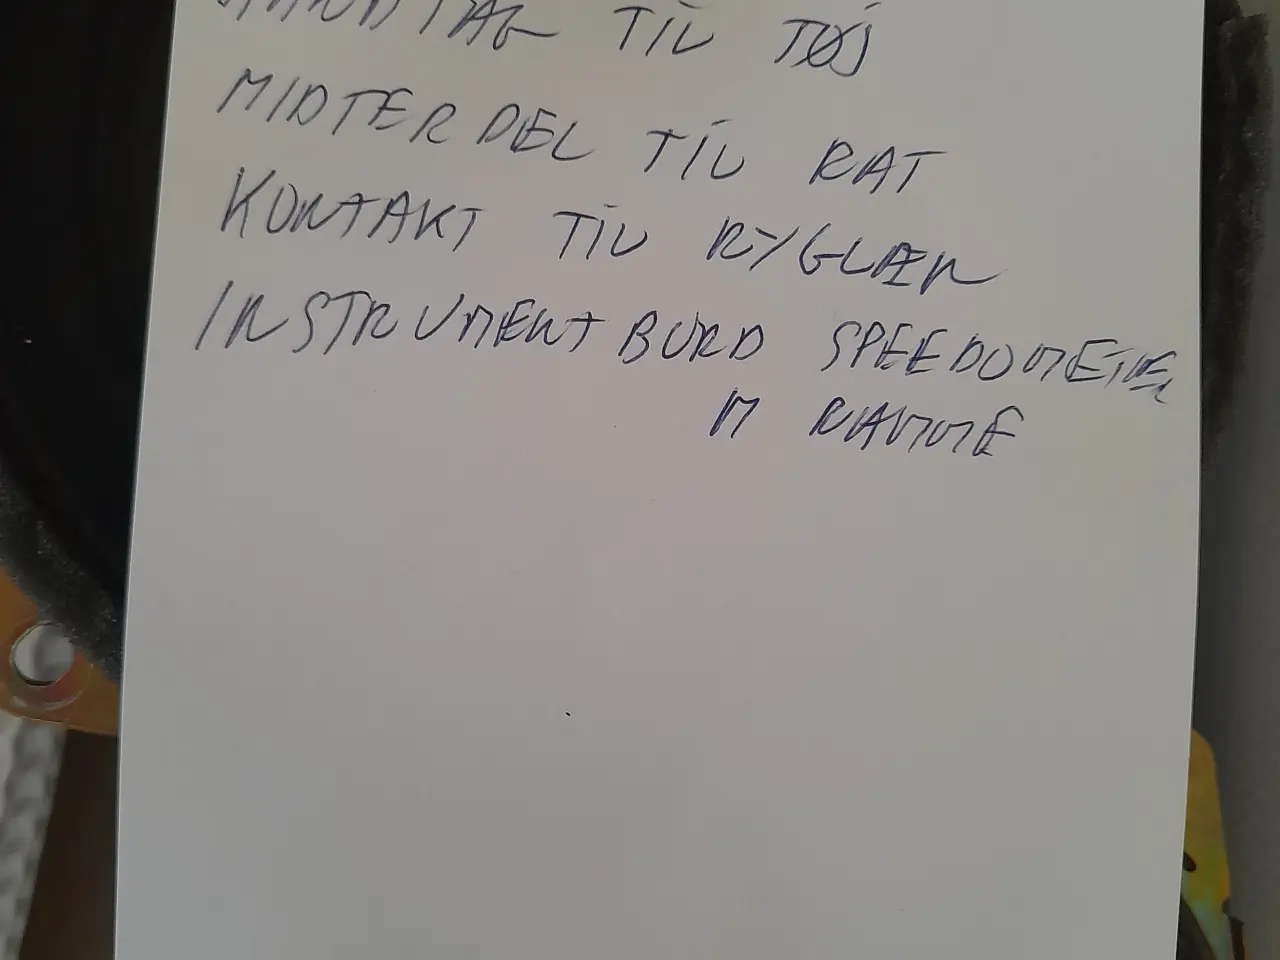 TIL TØJ
MIDTERDEL TIL RAT
KONTAKT TIL RYGLÆN
INSTRUMENTBURD SPEEDOMETER
M RAMME